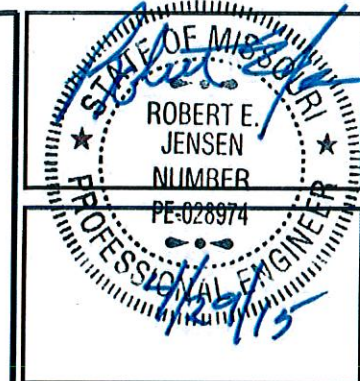 STATE OF MISSOURI
ROBERT E.
JENSEN
NUMBER
PE-028974
PROFESSIONAL ENGINEER
4/29/15